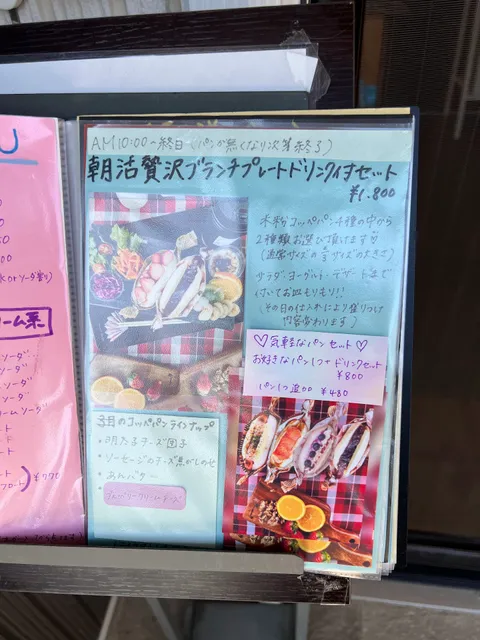 AM10:00〜終日(パンが無くなり次第終了)
朝活贅沢ブランチプレートドリンク付セット
¥1.800
米粉コッペパン4種の中から
2種類お選び頂けます
(通常サイズの サイズの大きさ)
サラダ、ヨーグルト、デザートまで
付いてお皿もりもり!!
(その日の仕入れにより盛りつけ
内容変わります)
♡気軽なパンセット♡
お好きなパン1つ+ドリンクセット
¥800
パン1つ追加 ¥480
のコッペパンラインナップ
・明太チーズ団子
・ソーセージのチーズ焦がしのせ
・あんバター
ーム系
ソーダ
ソーダ
ームソーダ
ート
フロート)¥770